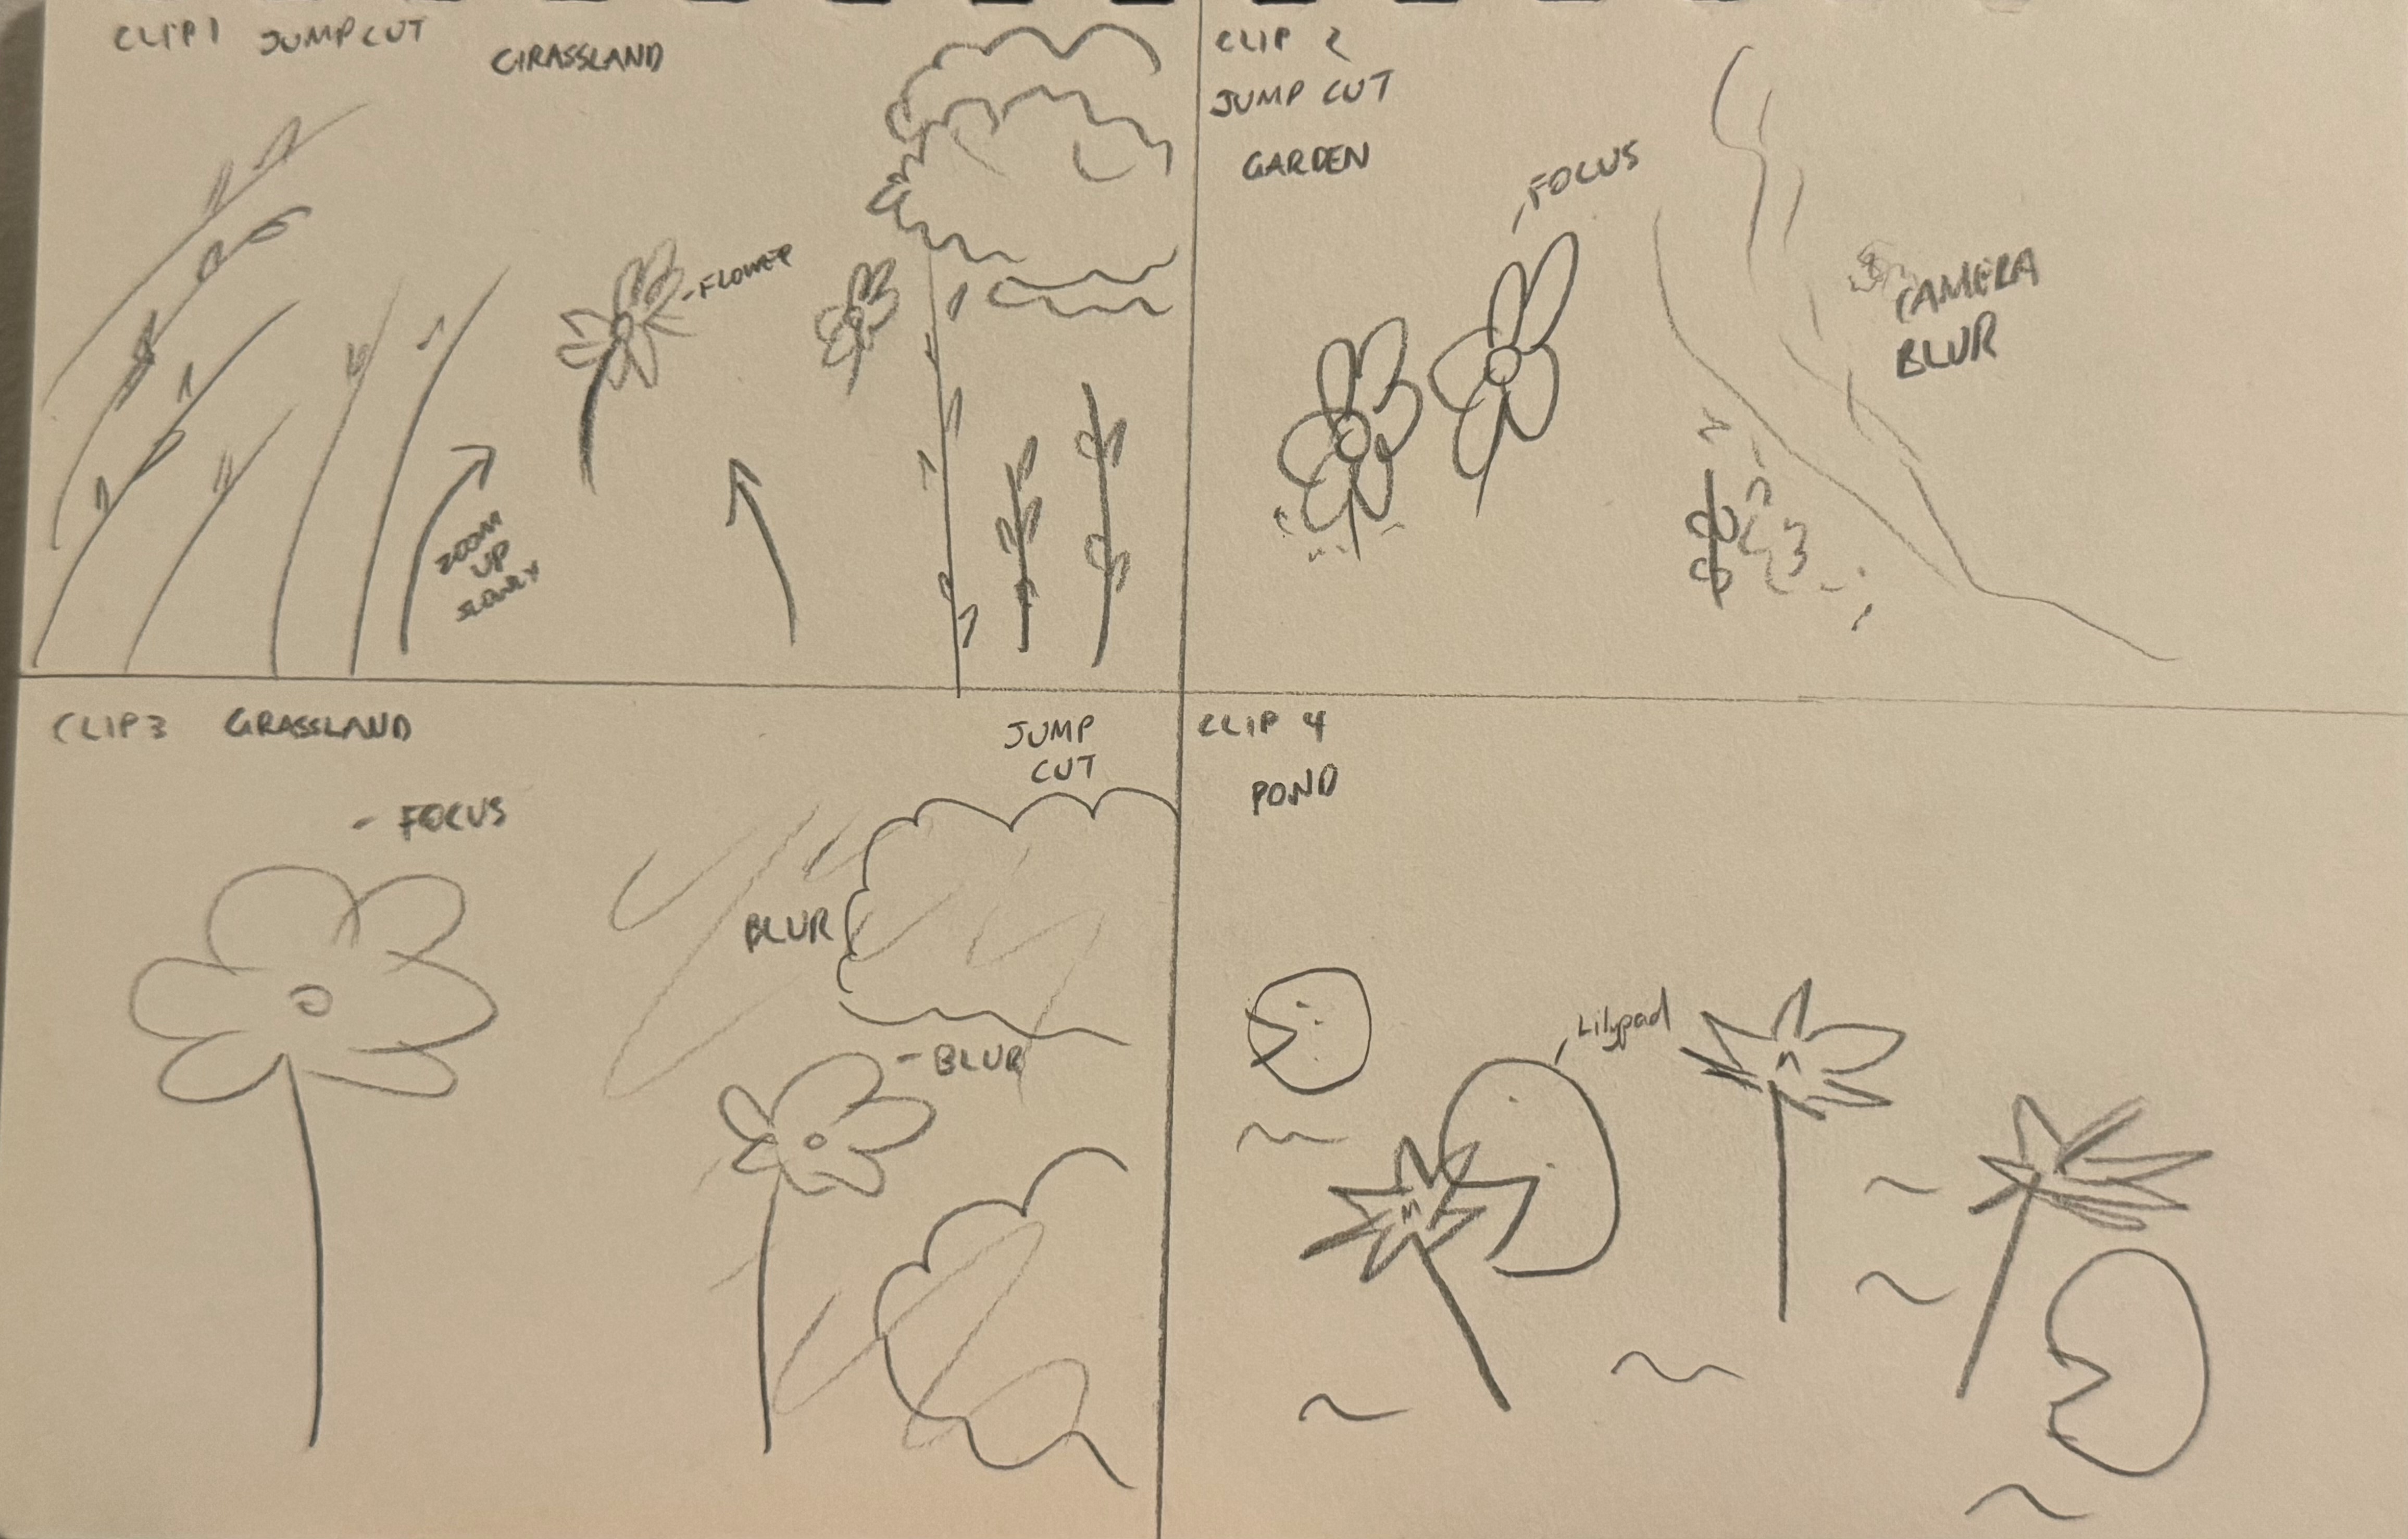 CLIP 1 JUMP CUT
GRASSLAND
FLOWER
ZOOM
UP
SLOWLY
CLIP 2
JUMP CUT
GARDEN
FOCUS
CAMERA
BLUR
CLIP 3 GRASSLAND
JUMP
CUT
- FOCUS
BLUR
- BLUR
CLIP 4
POND
Lilypad